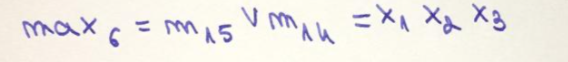 max₆ = m₁₅ ∨ m₁₄ = x₁ x₂ x₃